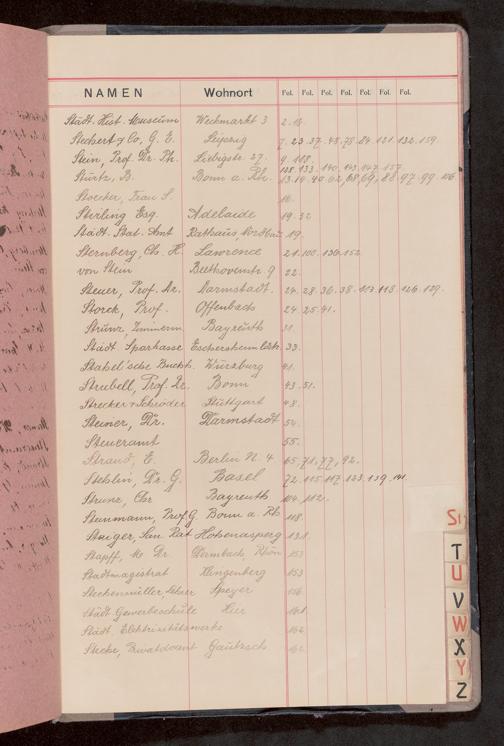 NAMEN Wohnort Fol. Fol. Fol. Fol. Fol. Fol. Fol.
Städt. Hist. Museum Weckmarkt 3 2. 14.
Stechert & Co, G. E. Leipzig 7. 23. 37. 48. 78. 84. 121. 132. 159.
Stein, Prof. Dr. Ph. Liebigstr. 27. 9. 118.
128. 133. 140. 143. 147. 157.
Sturtz, B. Bonn a. Rh. 13. 19. 40. 62. 68. 69. 88. 97. 99. 106.
Stoecker, Frau S. 16.
Stirling Esq. Adelaide 19. 32
Städt. Stat. Amt Rathaus, 19.
Sternberg, Ch. H. Lawrence 21. 100. 130. 152
von Stein Beethovenstr. 9 22.
Steuer, Prof. Dr. Darmstadt. 24. 28. 36. 38. 113. 118. 126. 129.
Storck, Prof. Offenbach 24. 25. 41.
Strunz, Bayreuth 31.
Städt Sparkasse 33.
Stahel'sche Buchh. Würzburg 41.
Strubell, Prof. Dr. Bonn 43. 51.
Strecker & Schröder Stuttgart 48.
Steiner, Dr. Darmstadt 54.
Steueramt 55.
Strand, E. Berlin N. 4 65. 71. 77. 92.
Stehlin, Dr. G. Basel 72. 115. 117. 123. 139. 141
Strunz, Chr Bayreuth 104. 112.
Steinmann, Prof. G. Bonn a. Rh 118.
Steiger, San. Rat Hohenasperg 131.
Stapff, Dr. Dermbach, Rhön 153
Stadtmagistrat Klingenberg 153
Steckenmüller, Lehrer Speyer 156
Städt. Gewerbeschule Hier 161
Städt. Elektrizitätswerke 162
Stecke, Privatdozent Gautzsch 162.
St
T
U
V
W
X
Y
Z